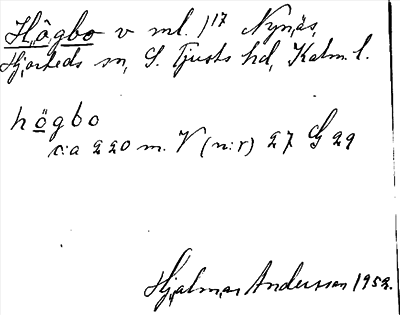 Högbo v ml. 1/17 Nynäs,
Hjorteds sn, S. Tjusts hd, Kalm. l.
högbo
c:a 220 m. V (n:r) 27 G 29
Hjalmar Andersson 1952.